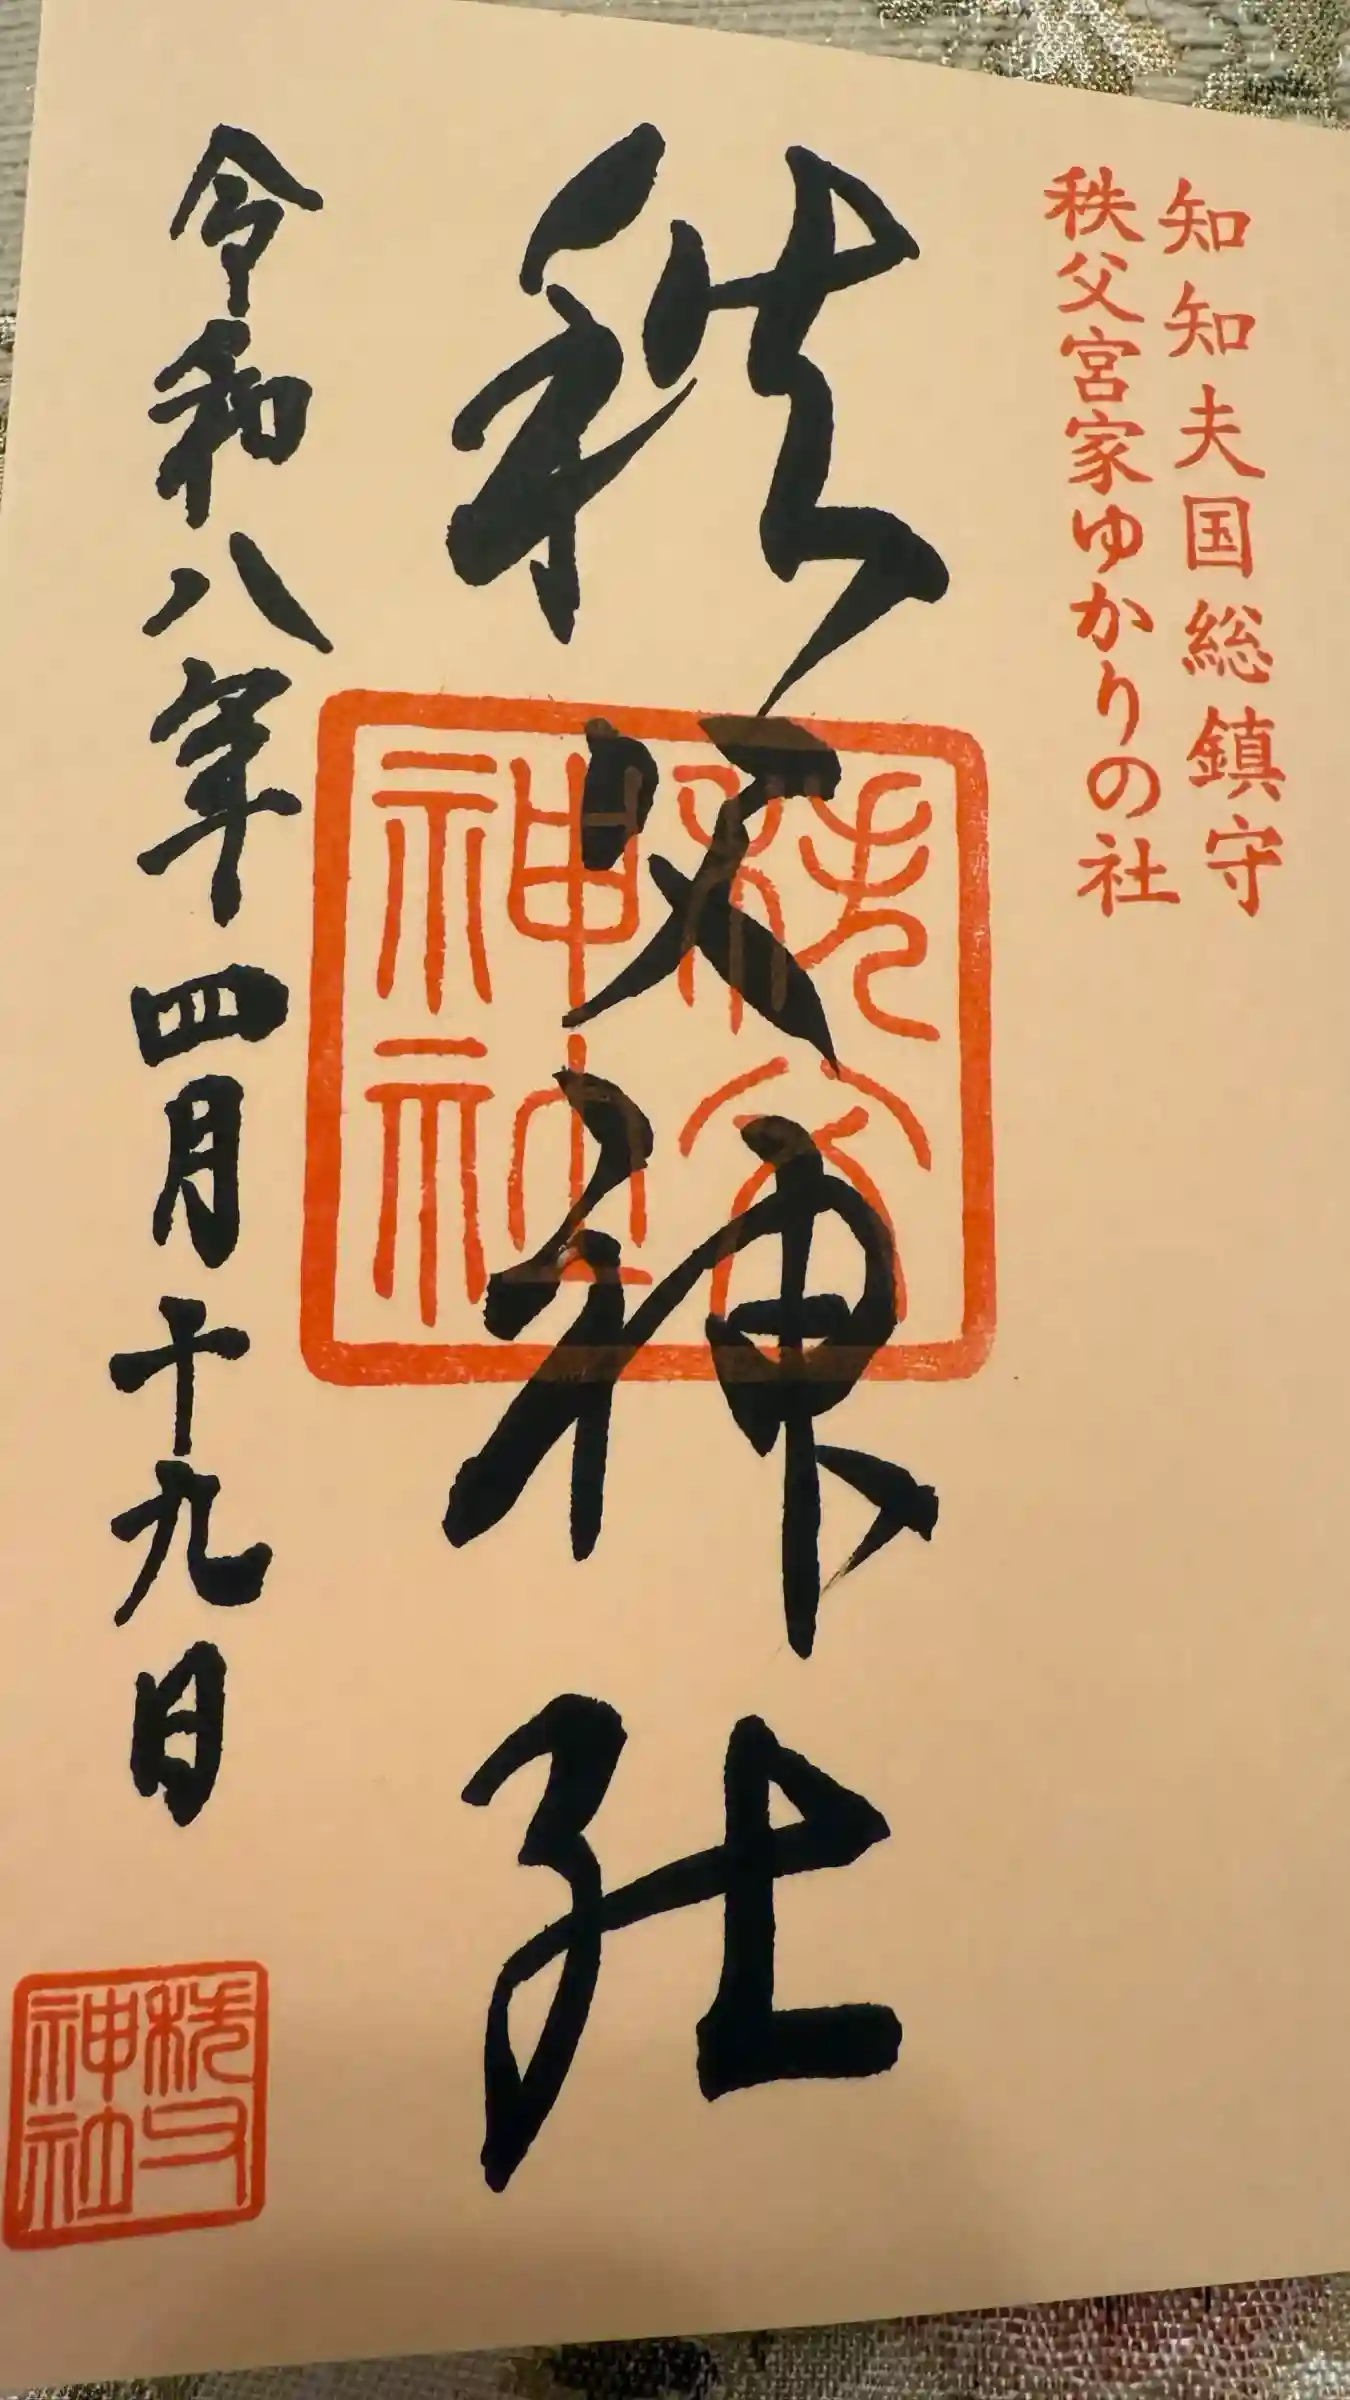 知知夫国総鎮守
秩父宮家ゆかりの社
秩父神社
秩父神社
令和八年四月十九日
秩父神社